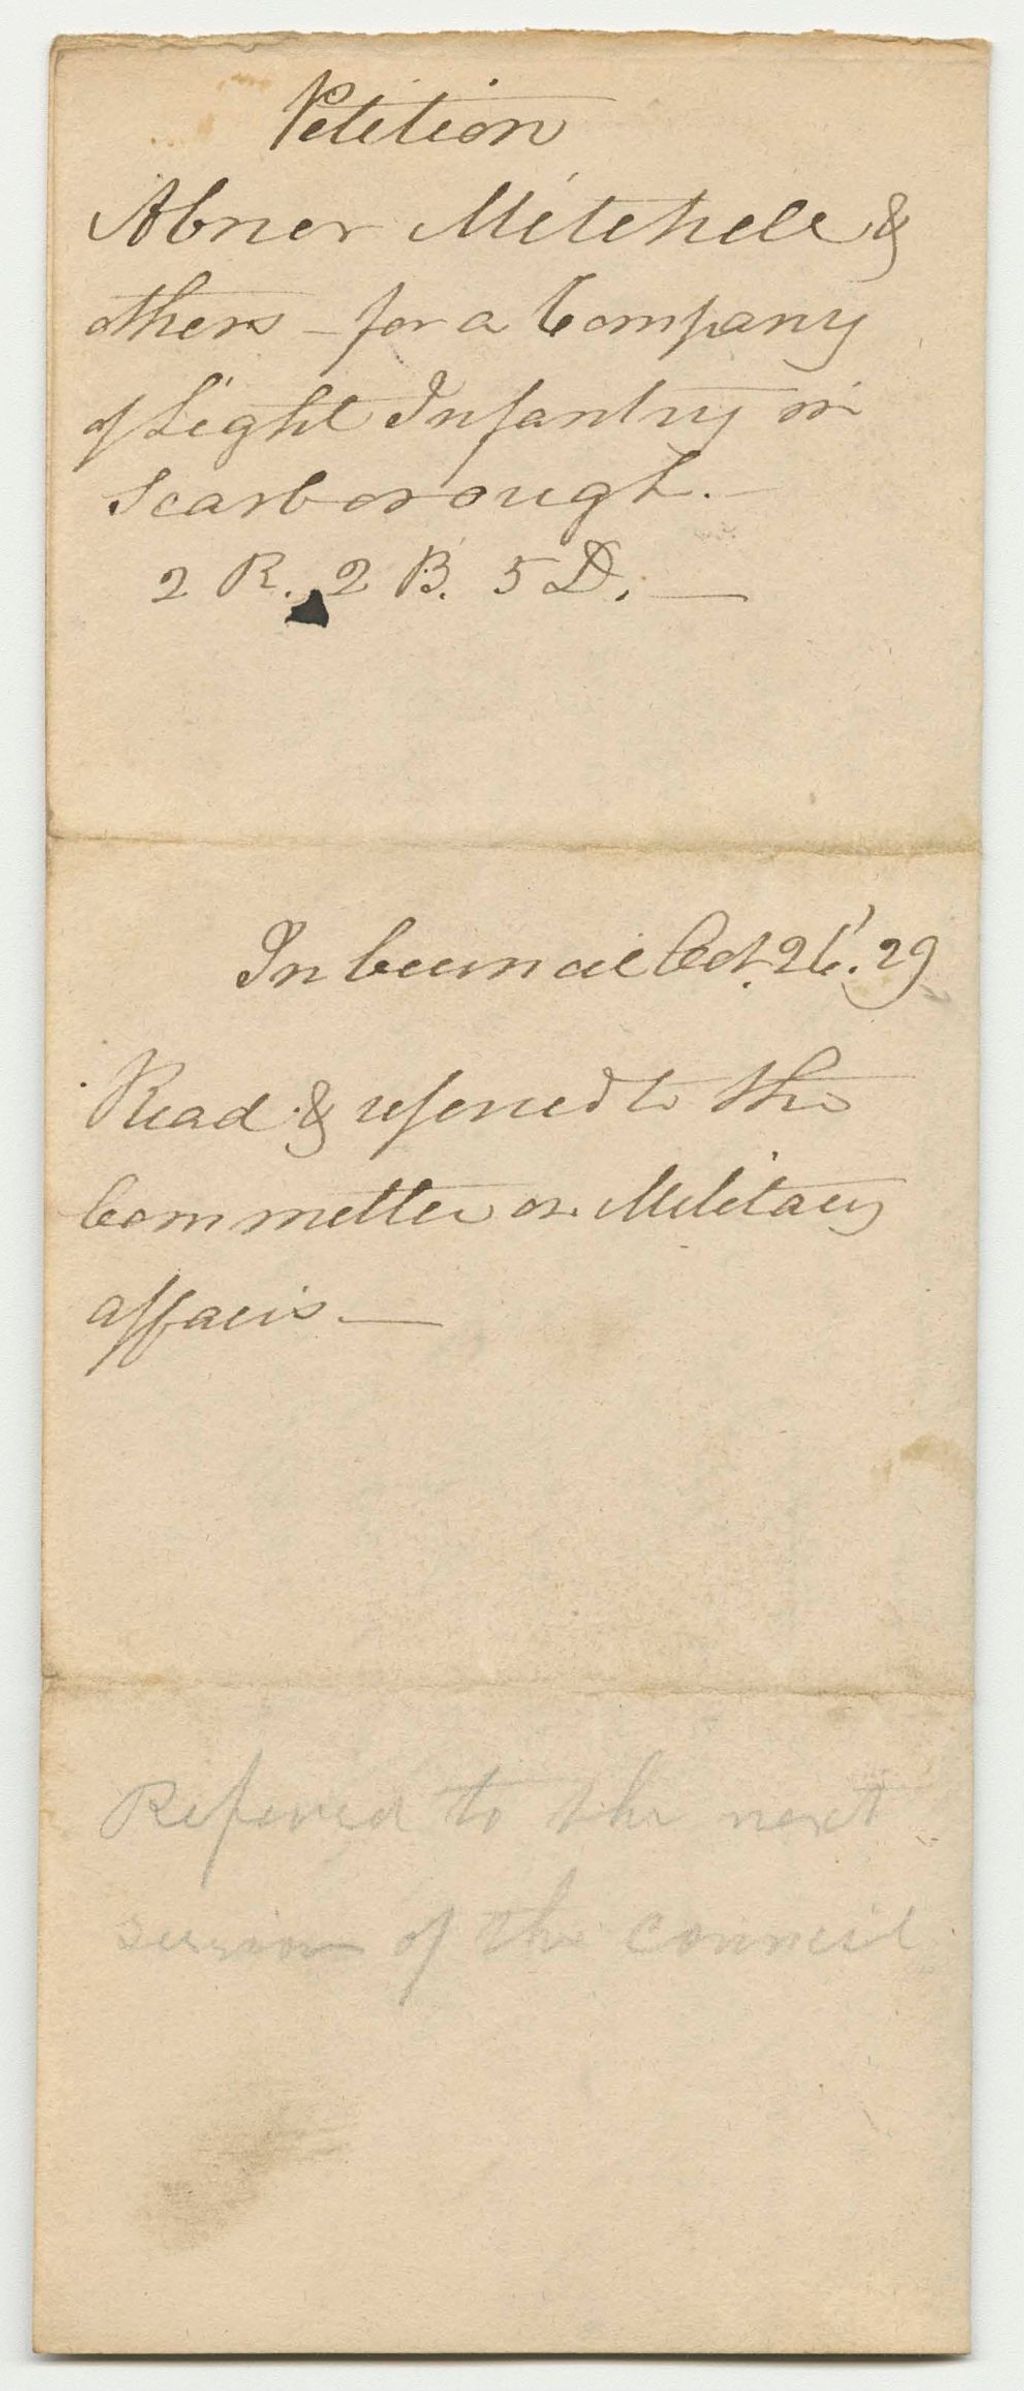 Petition
Abner Mitchell &
others - for a Company
of Light Infantry in
Scarborough. -
2 R. 2 B. 5 D. —
In Council Oct. 26. '29
Read & referred to the
Committee on Military
affairs. —
Referred to the next
session of the council